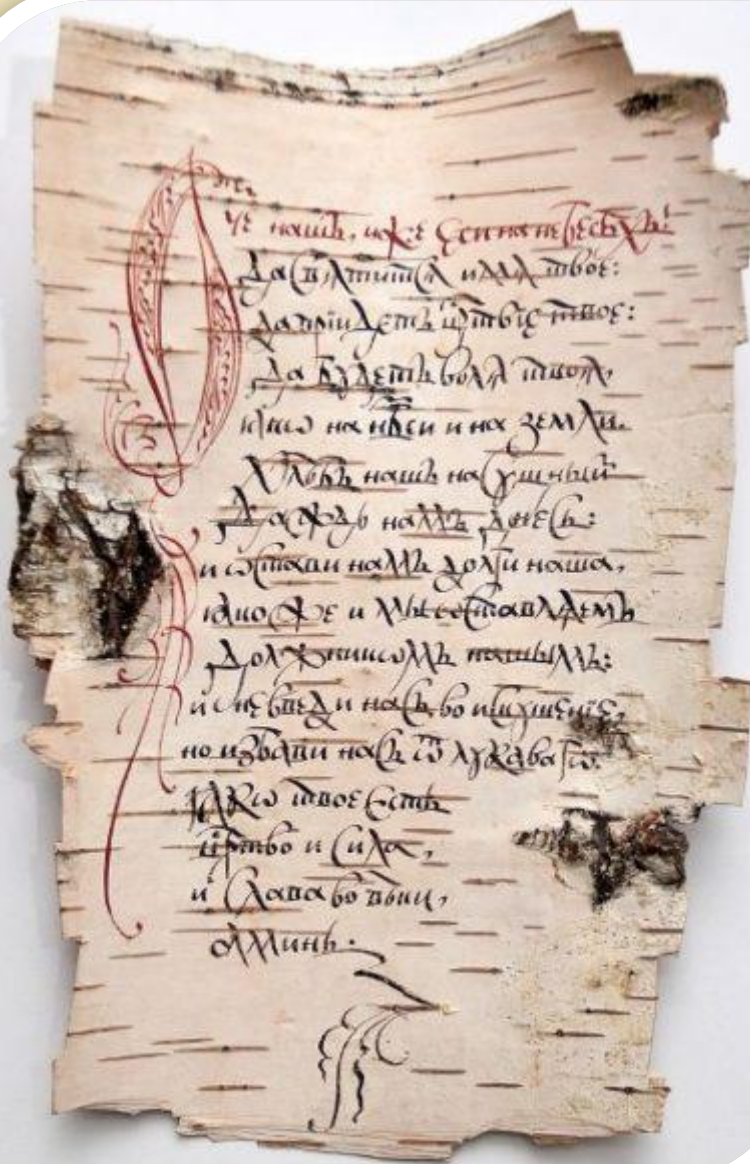 Отче нашъ, иже еси на нбесѣхъ:
Да свѧтитсѧ имѧ твое:
да прїидетъ црствїе твое:
да бꙋдетъ волѧ твоѧ,
ꙗкѡ на нбси и на земли.
Хлѣбъ нашъ насꙋщный
Даждь намъ днесь:
и ѡстави намъ долги наша,
ꙗкоже и мы ѡставлѧемъ
Должникѡмъ нашымъ:
и не введи насъ во искꙋшенїе,
но избави насъ ѿ лꙋкавагѡ.
ꙗкѡ твое есть
црство и сила,
и слава во вѣки,
аминь.